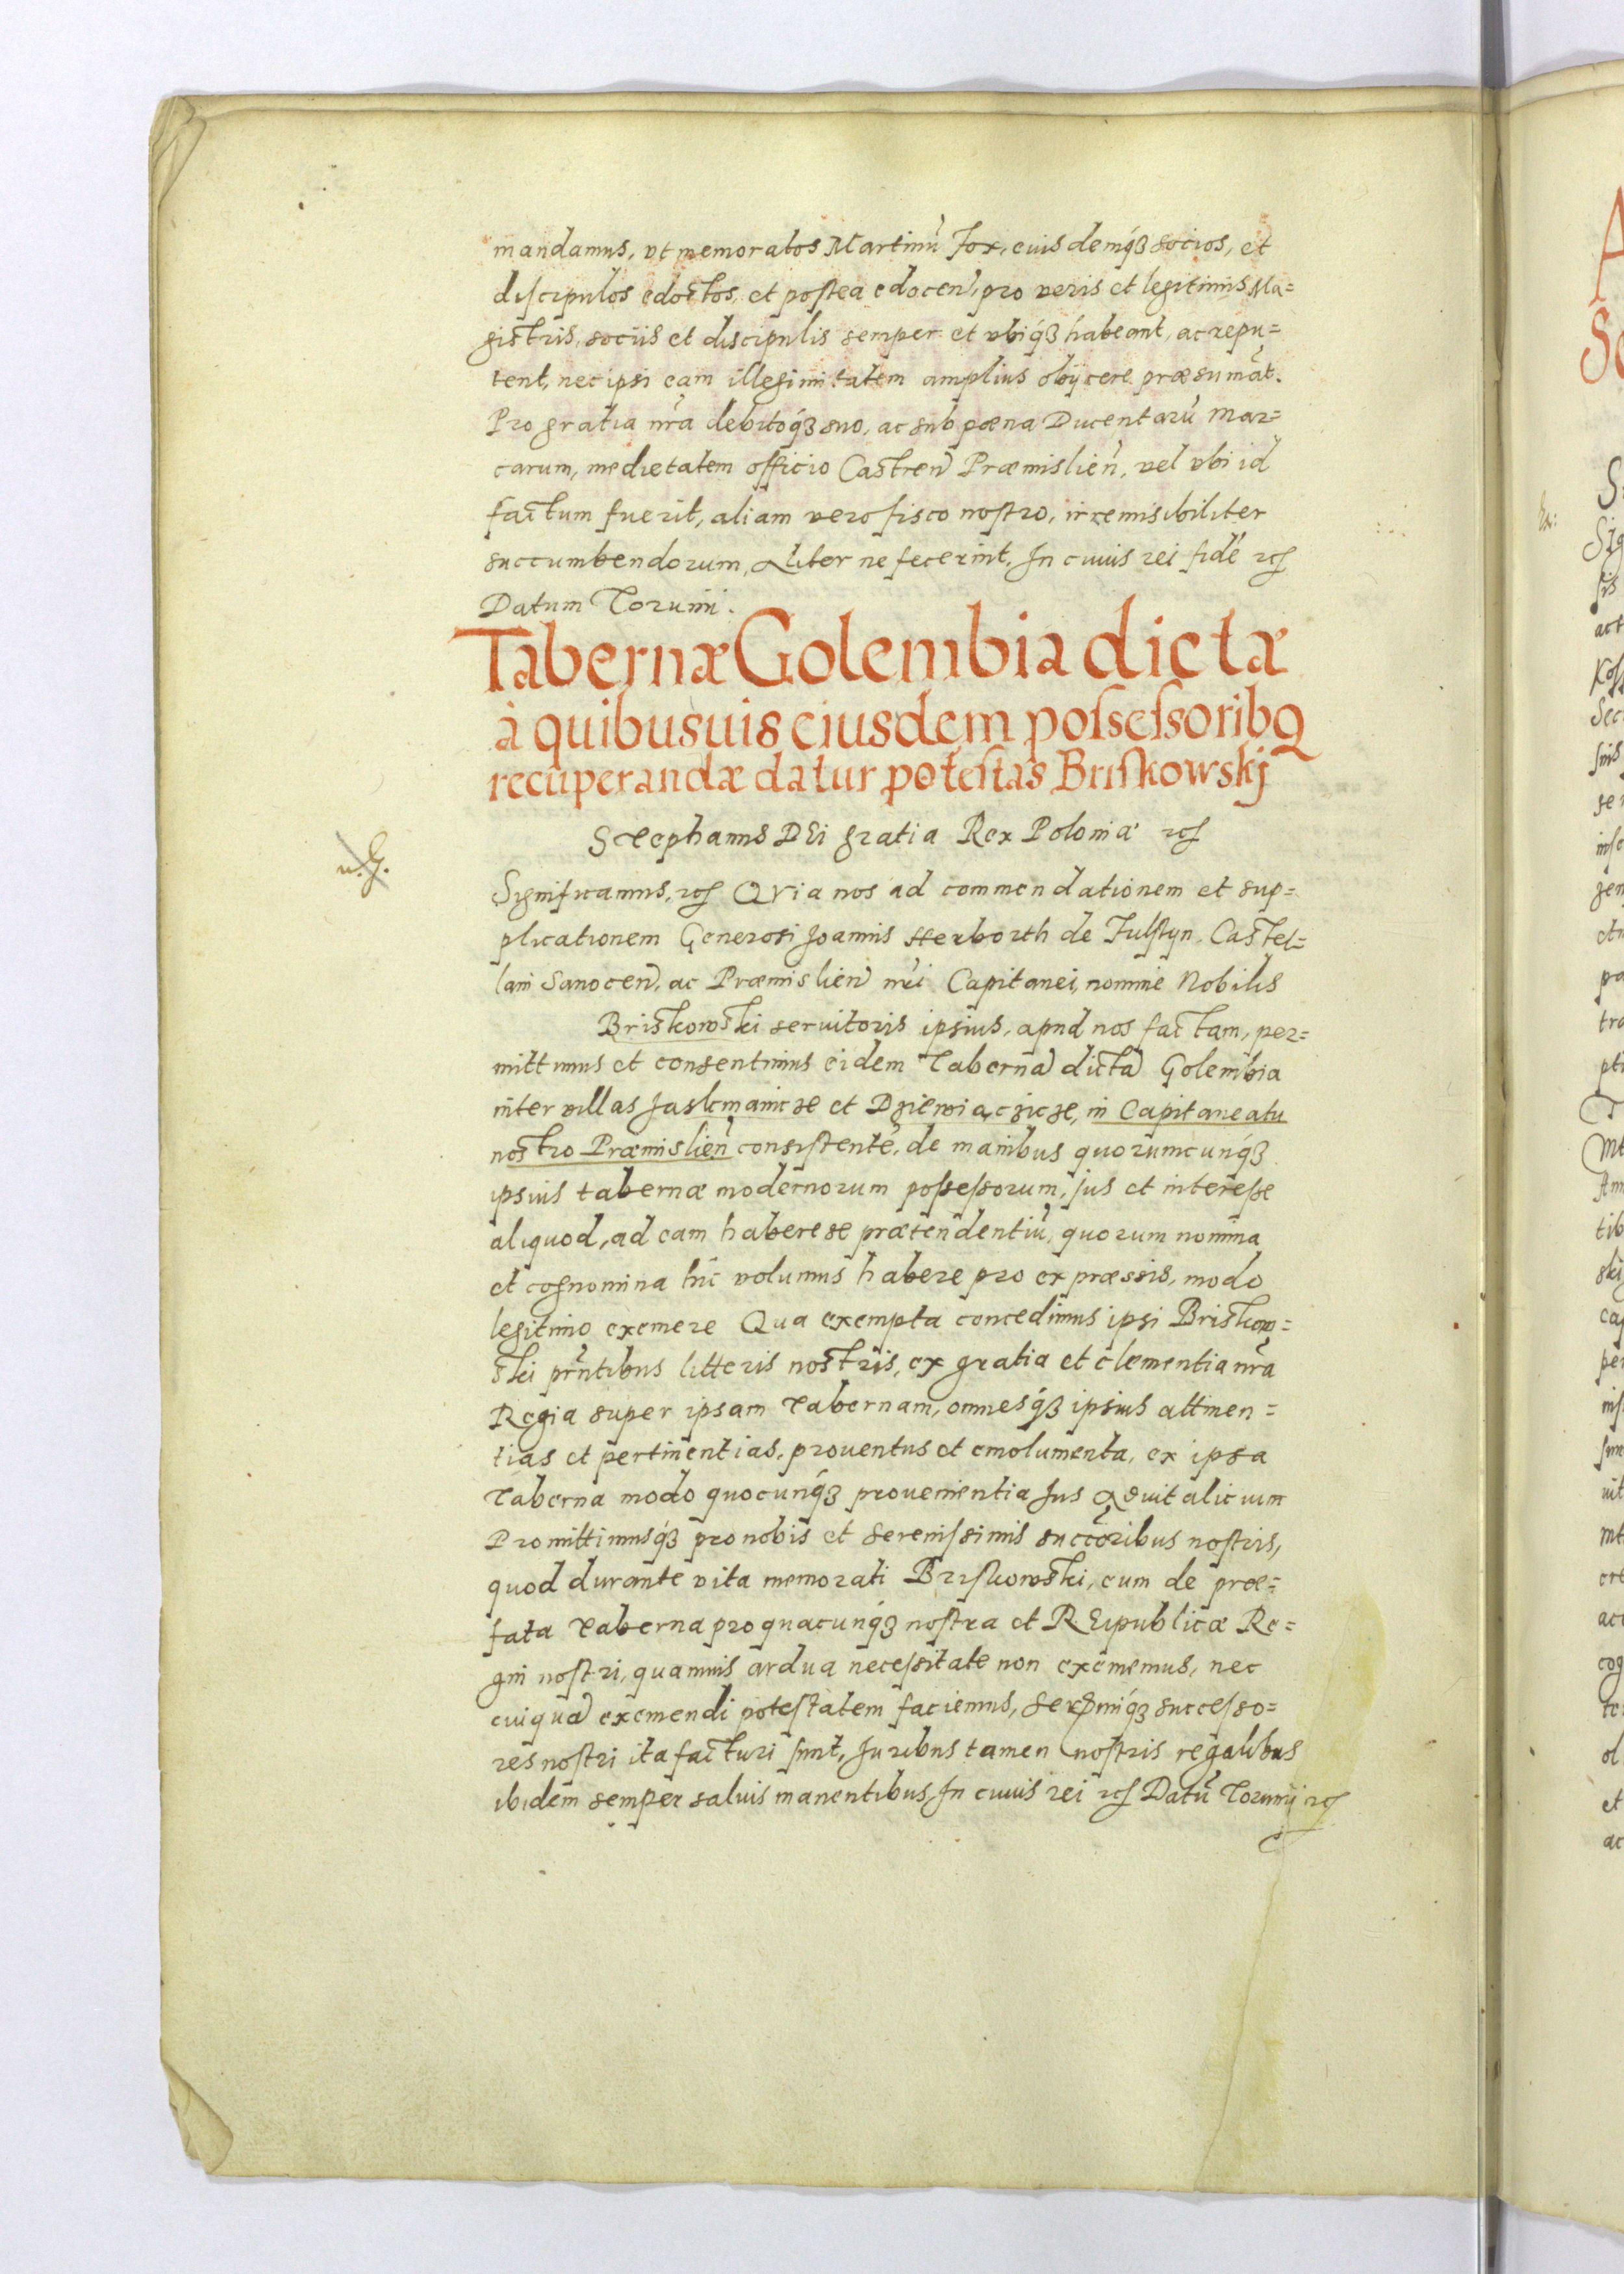 mandamus, vt memoratos Martinũ Fox, eiusdemq́ȝ socios, et
discipulos edoctos, et postea edocen̄, pro veris et legitimis Ma=
gistris, sociis et discipulis semper et vbiq́ȝ habeant, ac repu=
tent, nec ipsi eam illegimitatem amplius obijcere præsumãt.
Pro gratia nr̃a debitoq́ȝ suo, ac sub pœna Ducentarũ Mar=
carum, medietatem officio Castren̄ Præmislien̄, vel vbi id
factum fuerit, aliam vero fisco nostro, irremisibiliter
succumbendorum, Aliter ne fecerint, In cuius rei fidẽ ꝛcꝭ
Datum Torunii.
Tabernæ Golembia dictæ
à quibusuis eiusdem possessoribꝗ
recuperandæ datur potestas Briskowskj
Stephanus DEi gratia Rex Poloniæ ꝛcꝭ
u. G.
Significamus, ꝛcꝭ QVia nos ad commendationem et sup=
plicationem Generosi Joannis Herborth de Fulstyn, Castel=
lani Sanocen̄, ac Præmislien̄ nr̃i Capitanei, nomine Nobilis
Briskowski seruitoris ipsius, apud nos factam, per=
mittimus et consentimus eidem Tabernã dictã Golembia
inter villas Jaskmanicze et Dziewiączicze, in Capitaneatu
nostro Præmislien̄ consistentẽ, de manibus quorumcunq́ȝ
ipsius tabernæ modernorum possessorum, jus et interesse
aliquod, ad eam habere se prætendentiũ, quorum nomina
et cognomina hĩc volumus habere pro expræssis, modo
legitimo exemere Qua exempta concedimus ipsi Briskow=
ski pr̃ntibus litteris nostris, ex gratia et clementia nr̃a
Regia super ipsam Tabernam, omnesq́ȝ ipsius attinen=
tias et pertinentias, prouentus et emolumenta, ex ipsa
Taberna modo quocunq́ȝ prouenientia Jus Aduitalicium
Promittimusq́ȝ pro nobis et Serenissimis succõribus nostris,
quod durante vita memorati Briskowski, eum de præ=
fata Taberna pro quacunq́ȝ nostra et REipublicæ Re=
gni nostri, quamuis ardua necessitate non exememus, nec
cuiquã exemendi potestatem faciemus, Serͫiq́ȝ successo=
res nostri ita facturi sunt, Juribus tamen nostris regalibus
ibidem semper saluis manentibus, In cuius rei ꝛcꝭ Datũ Torunij ꝛcꝭ